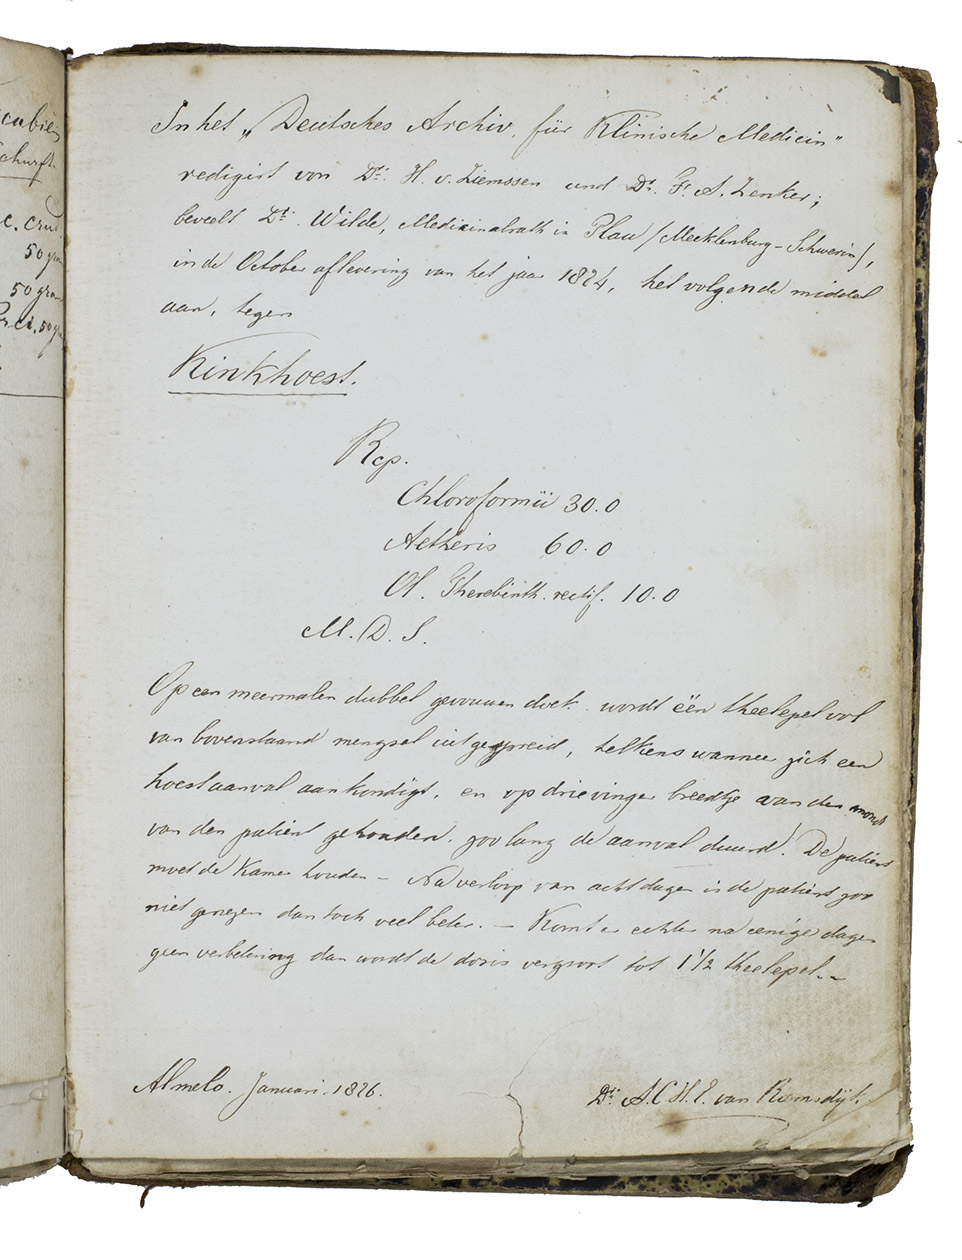 cubiën
Schurft.
c. crud
50 gram
50 gram
rci. 50 gr
In het „Deutsches Archiv für Klinische Medicin"
redigirt von Dr. H. v. Ziemssen und Dr. F. A. Zenker;
beveelt Dr. Wilde, Medicinalrath in Plau (Mecklenburg-Schwerin),
in de October aflevering van het jaar 1874, het volgende middel
aan, tegen
Kinkhoest.
Rcp.
Chloroformii 30.0
Aetheris 60.0
Ol. Therebinth. rectif. 10.0
M. D. S.
Op een meermalen dubbel gevouwen doek wordt één theelepel vol
van bovenstaand mengsel uitgespreid, telkens wanneer zich een
hoestaanval aankondigt, en op drie vinger breedte van den mond
van den patiënt gehouden, zoo lang de aanval duurd! De patiënt
moet de Kamer houden – Na verloop van acht dagen is de patiënt zoo
niet genezen dan toch veel beter. – Komt er echter na eenige dagen
geen verbetering dan wordt de dosis vergroot tot 1 1/2 theelepel. –
Almelo. Januari. 1876.
Dr. A. C. H. E. van Romondijk.